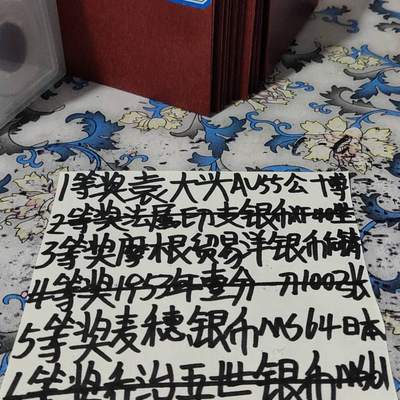 1等奖袁大头AU55公博
2等奖法属印支银币XF40
3等奖摩根贸易洋银币
4等奖1953年壹分一刀100张
5等奖麦穗银币MS64日本
6等奖乔治五世银币MS61